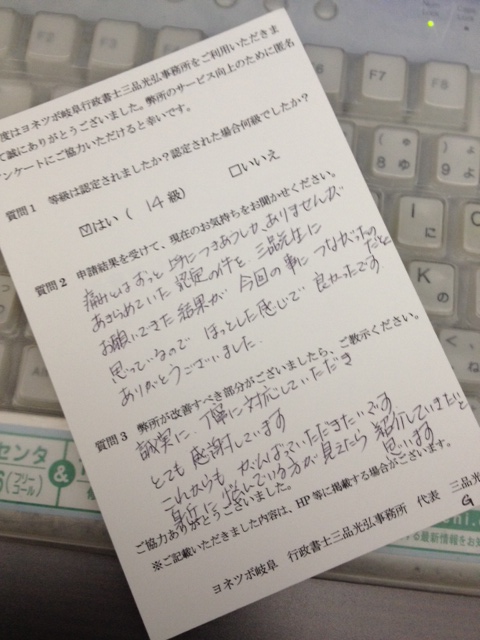 度はヨネツボ岐阜行政書士三品光弘事務所をご利用いただきま
て誠にありがとうございました。弊所のサービス向上のために匿名
ンケートにご協力いただけると幸いです。
質問1 等級は認定されましたか?認定された場合何級でしたか?
☑はい( 14級) □いいえ
質問2 申請結果を受けて、現在のお気持ちをお聞かせください。
痛みとはずっと 均につきあうしか、ありませんが
あきらめていた 認定の件を 三品先生に
お願いできた結果が 今回の事に つながったのだと
思っているので ほっとした感じで 良かったです
ありがとうございました.
質問3 弊所が改善すべき部分がございましたら、ご教示ください。
誠実に、丁寧に対応していただき
とても 感謝しています
これからも がんばっていただきたいです
身近に 悩んでいる方が 見えたら 紹介していきたいと
思います
ご協力ありがとうございました。
※ご記載いただきました内容は、HP等に掲載する場合がございます。
ヨネツボ岐阜 行政書士三品光弘事務所 代表 三品光
G
F6
F7
F8
(
8
ゆ
)
9
よ
I
に
O
K
の
L
センタ
&
(フリーコール)
最新情報をお